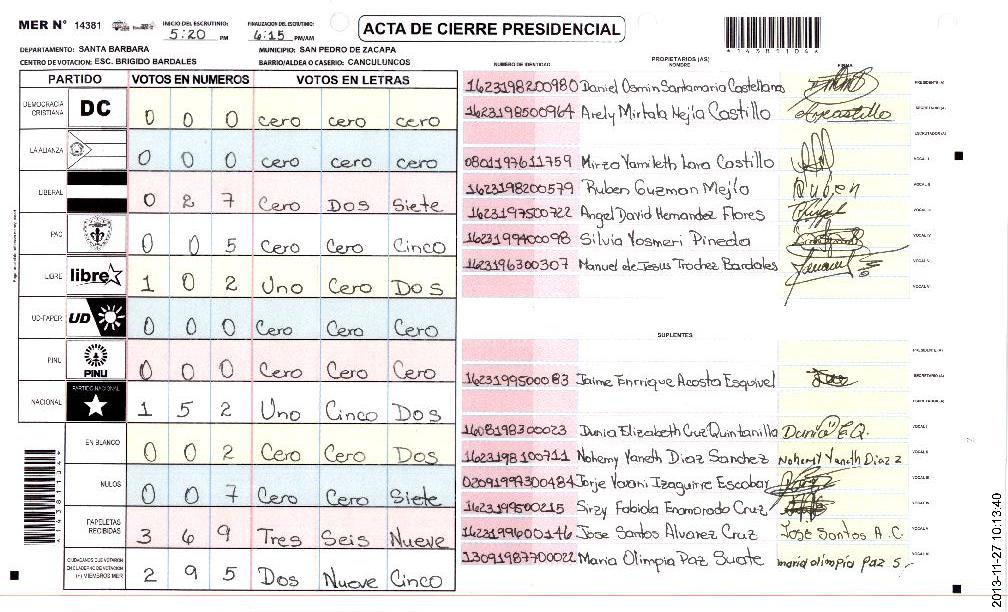 MER N° 14381
INICIO DEL ESCRUTINIO: 5:20 PM
FINALIZACION DEL ESCRUTINIO: 6:15 PM/AM
ACTA DE CIERRE PRESIDENCIAL
*14381104*
DEPARTAMENTO: SANTA BARBARA
MUNICIPIO: SAN PEDRO DE ZACAPA
CENTRO DE VOTACION: ESC. BRIGIDO BARDALES
BARRIO/ALDEA O CASERIO: CANCULUNCOS
PARTIDO VOTOS EN NUMEROS VOTOS EN LETRAS
DEMOCRACIA CRISTIANA DC 0 0 0 cero cero cero
LA ALIANZA 0 0 0 cero cero cero
LIBERAL 0 2 7 Cero Dos Siete
PAC 0 0 5 Cero Cero Cinco
LIBRE libre 1 0 2 Uno Cero Dos
UD-FAPER UD 0 0 0 Cero Cero Cero
PINU PINU 0 0 0 Cero Cero Cero
NACIONAL PARTIDO NACIONAL 1 5 2 Uno Cinco Dos
EN BLANCO 0 0 2 Cero Cero Dos
NULOS 0 0 7 Cero Cero Siete
PAPELETAS RECIBIDAS 3 6 9 Tres Seis Nueve
CIUDADANOS QUE VOTARON EN CUADERNO DE VOTACION (+) MIEMBROS MER 2 9 5 Dos Nueve Cinco
PROPIETARIOS (AS)
NUMERO DE IDENTIDAD NOMBRE FIRMA
1623198200980 Daniel Osmin Santamaria Castellano PRESIDENTE (A)
1623198500964 Arely Mirtala Mejia Castillo SECRETARIO (A)
ESCRUTADOR (A)
0801197611759 Mirza Yamileth Lara Castillo VOCAL I
1623198200579 Ruben Guzman Mejia Ruben VOCAL II
1623197500722 Angel David Hernandez Flores VOCAL III
1623199400098 Silvia Yosmeri Pineda VOCAL IV
1623196300307 Manuel de Jesus Trochez Bardales VOCAL V
VOCAL VI
SUPLENTES
PRESIDENTE (A)
1623199500083 Jaime Enrrique Acosta Esquivel SECRETARIO (A)
ESCRUTADOR (A)
1608198300023 Dunia Elizabeth Cruz Quintanilla Dunia E.Q. VOCAL I
1623198100711 Nohemy Yaneth Diaz Sanchez Nohemy Yaneth Diaz z VOCAL II
0209199300484 Jorje Yovani Izaguirre Escobar VOCAL III
1623199500215 Sirzy Fabiola Enamorado Cruz VOCAL IV
1623199600146 Jose Santos Alvarez Cruz Jose Santos A.C. VOCAL V
1309198770002​2 Maria Olimpia Paz Suate maria olimpia Paz S. VOCAL VI
2013-11-27 10:13:40